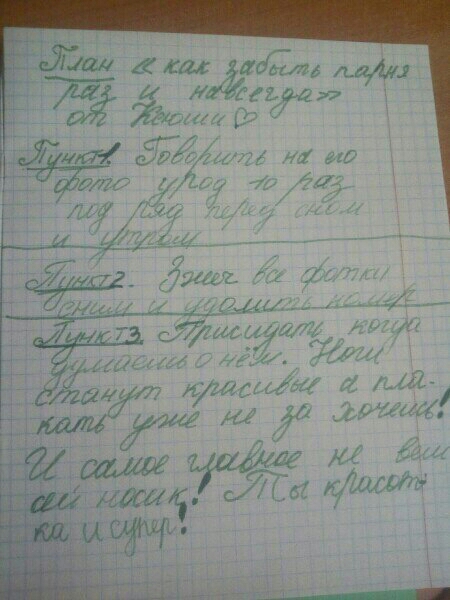 План « как забыть парня
раз и навсегда»
от Ксюши♡
Пункт1. Говорить на его
фото урод 10 раз
под ряд перед сном
и утром
Пункт2. Зжеч все фотки
сним и удолить номер
Пункт3 Присидать когда
думаешь о нём. Ноги
станут красивые а пла-
кать уже не за хочешь!
И самое главное не веш
ай носик! Ты красот
ка и супер!